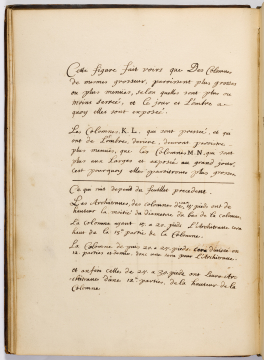 Cette figure fait voirs que Des Colonnes
de mesmes grosseur, paroissent plus grosses
ou plus menuës, selon quelles sont plus ou
moins serreés, et le jour et l'ombre a-
quoy elles sont exposeés.
Les Colonnes, K. L. qui sont presseé, et qui
ont de l'ombre, deriere, devront paroistre
plus menuës, que les Colonnes M. N. qui sont
plus aux larges et exposeés au grand jour,
C'est pourquoy elles paroistront plus grosses
Ce qui suit depend du feuillet precedent.
Les Architraves, des colonnes de 15. pieds ont de
hauteur la moitié du diametre du bas de la colonne,
La Colonne ayant 15. a 20. pieds L'Architrave aura
haut de la 13e. partie de la Colonne.
La Colonne de puis 20. a 25. pieds sera diviseé en
12. parties et demie, dont une sera pour L'Architrave.
et enfin celles de 25. a 30. pieds ont leurs Ar-
chitraves d'une 12e. partie, de la hauteur de la
Colonne